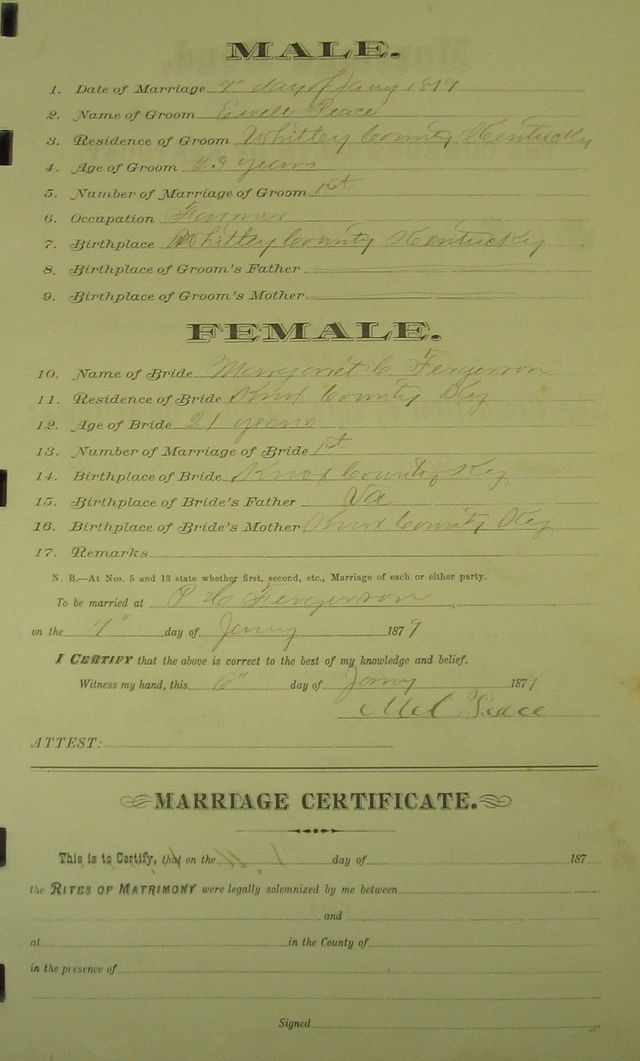 MALE.
1. Date of Marriage 7" day of Jany 1879
2. Name of Groom Ewell Peace
3. Residence of Groom Whitley County Kentucky
4. Age of Groom 23 years
5. Number of Marriage of Groom 1st
6. Occupation Farmer
7. Birthplace Whitley County Kentucky
8. Birthplace of Groom's Father
9. Birthplace of Groom's Mother
FEMALE.
10. Name of Bride Margaret C Fergerson
11. Residence of Bride Knox County Ky
12. Age of Bride 21 years
13. Number of Marriage of Bride 1st
14. Birthplace of Bride Knox County Ky
15. Birthplace of Bride's Father Va
16. Birthplace of Bride's Mother Knox County Ky
17. Remarks
N. B.—At Nos. 5 and 13 state whether first, second, etc., Marriage of each or either party.
To be married at P H Fergerson
on the 7" day of Jany 1879
I CERTIFY that the above is correct to the best of my knowledge and belief.
Witness my hand, this 6" day of Jany 1879
Peace
ATTEST:
MARRIAGE CERTIFICATE.
This is to Certify, that on the day of 187
the RITES OF MATRIMONY were legally solemnized by me between
and
at in the County of
in the presence of
Signed